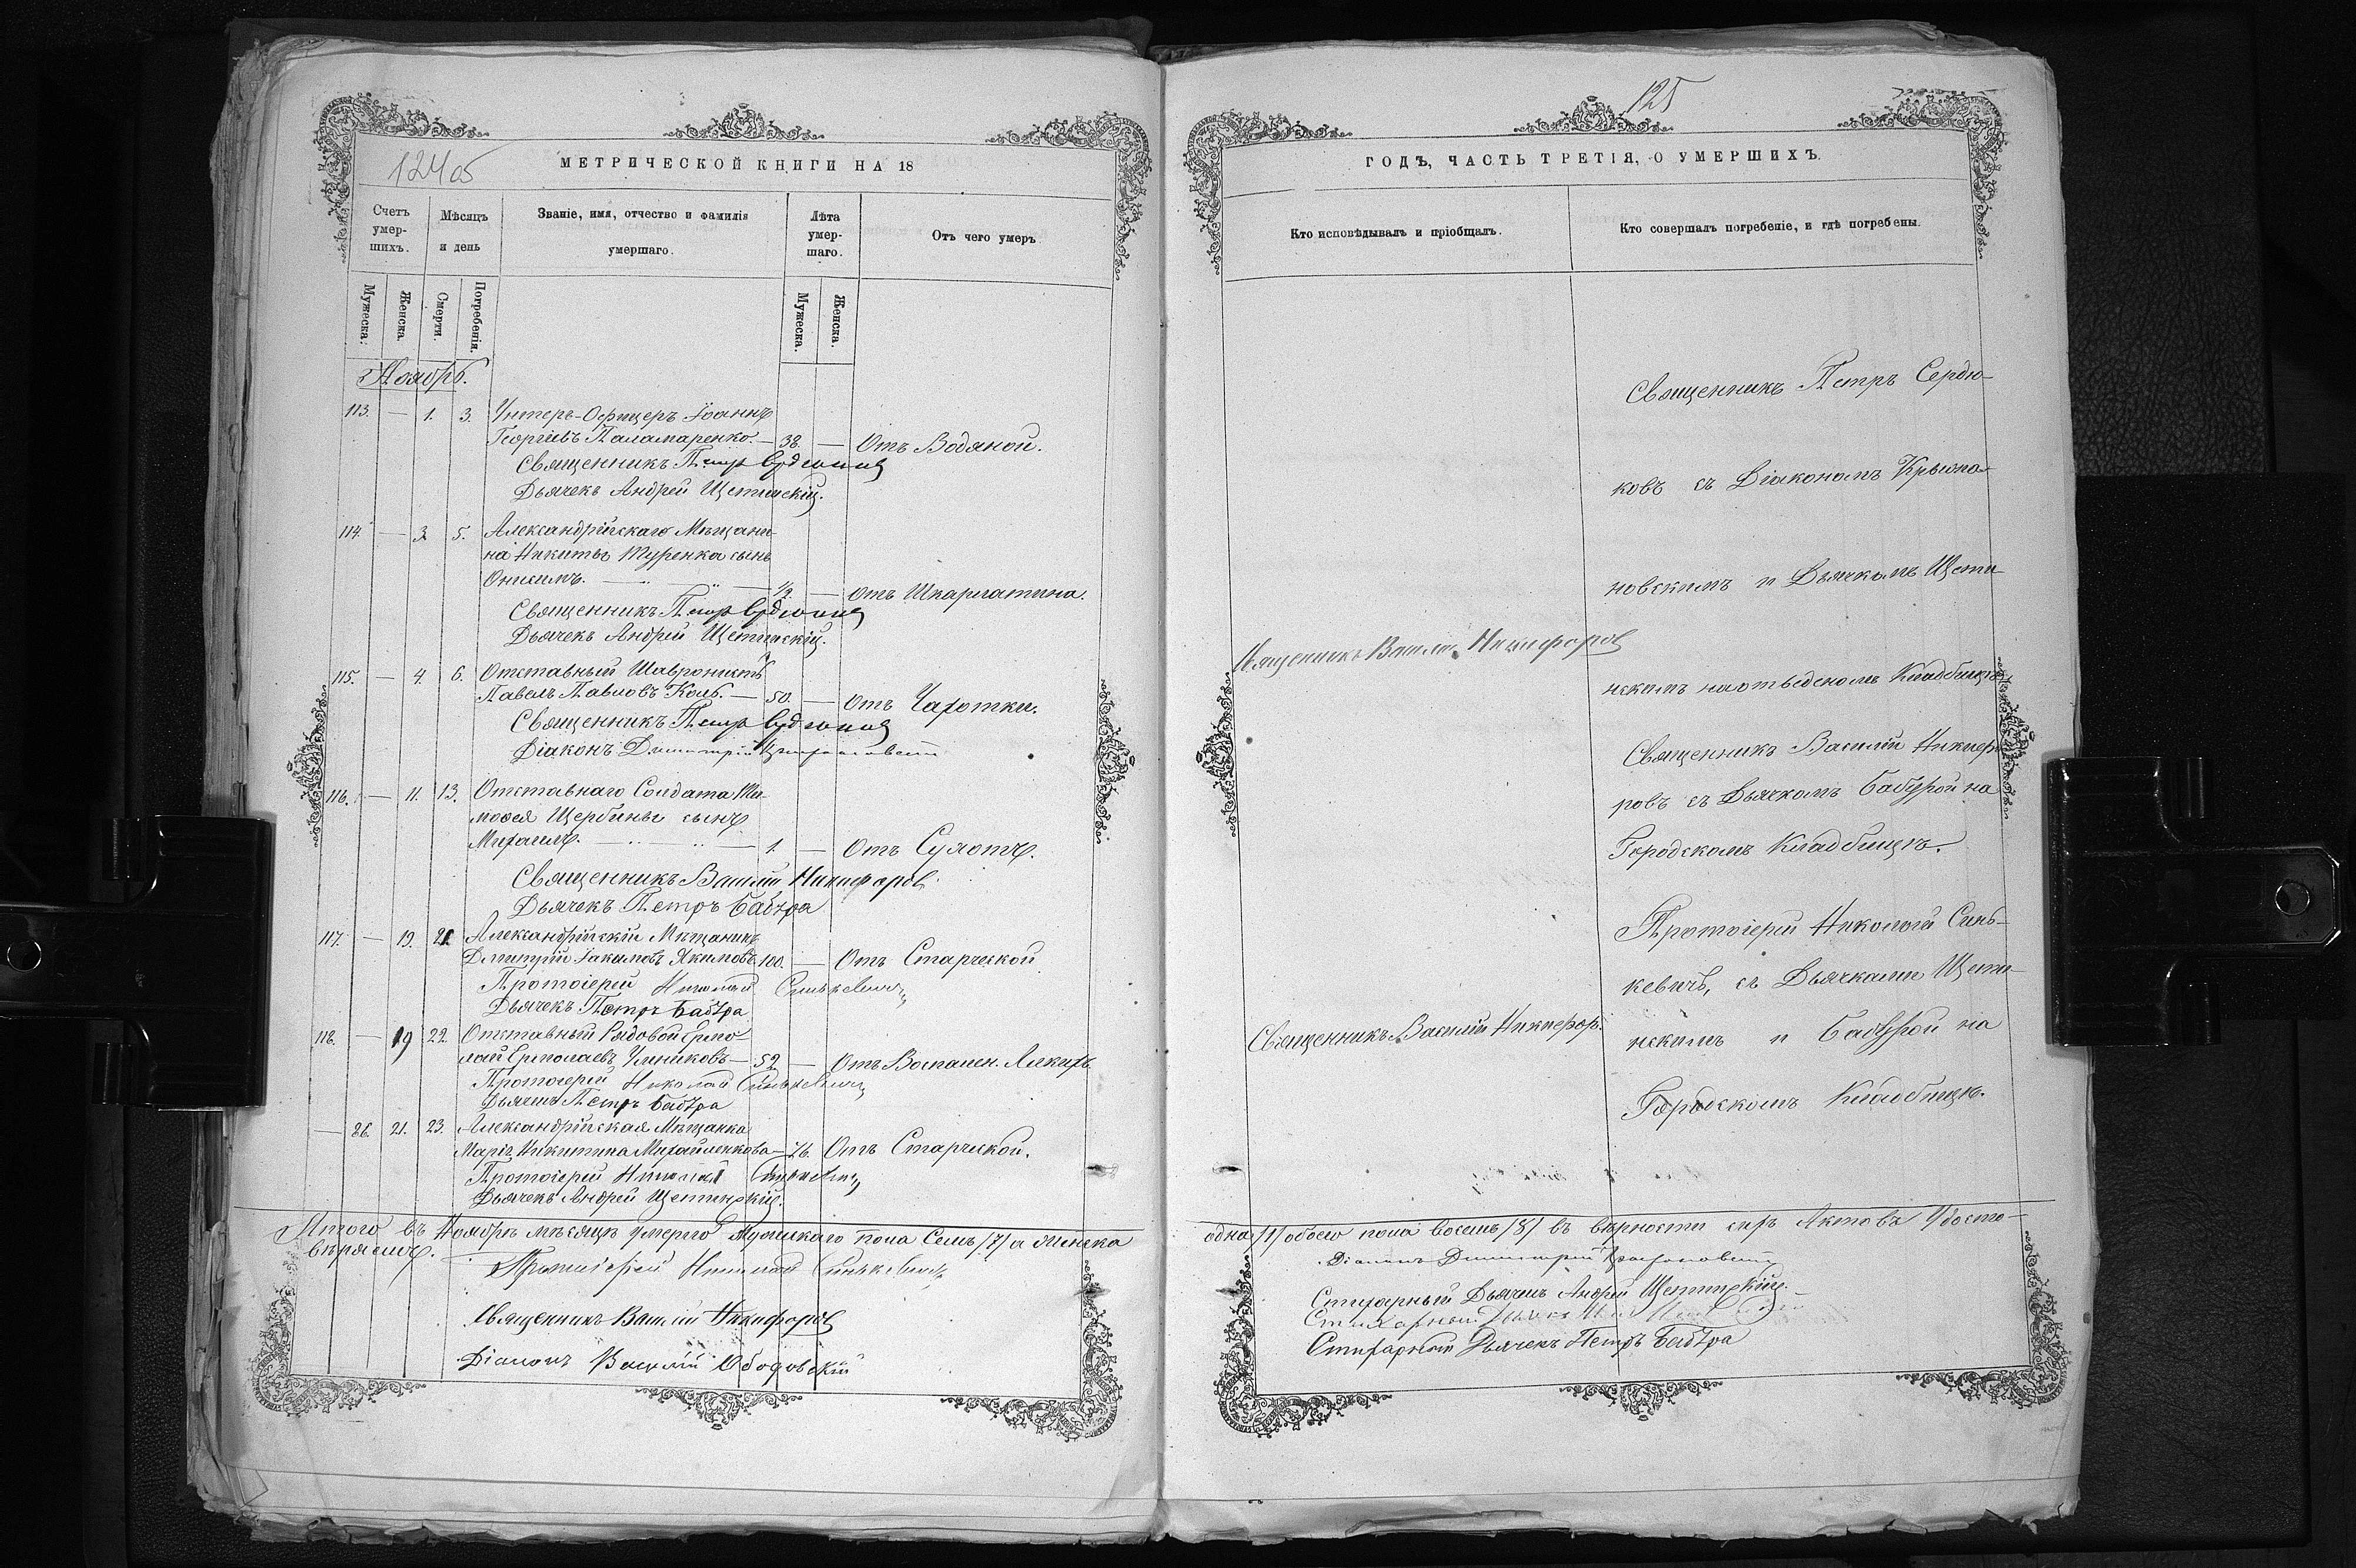 124 об
МЕТРИЧЕСКОЙ КНИГИ НА 18
Счетъ умер-шихъ.
Мѣсяцъ и день
Званіе, имя, отчество и фамилія умершаго.
Лѣта умер-шаго.
Отъ чего умеръ
Мужеска.
Женска.
Смерти.
Погребенія.
Мужеска.
Женска.
Ноябрь.
113. — 1. 3. Унтеръ-Офицеръ Іоаннъ
Георгіевъ Паламаренко. — 38. — Отъ Водяной.
Священникъ Петръ Сердюковъ
Дьячекъ Андрей Щетинскій.
114. — 3. 5. Александрійскаго Мѣщани-
на Никиты Туренка сынъ
Онисимъ. — ½. — Отъ Шкарлатина.
Священникъ Петръ Сердюковъ
Дьячекъ Андрей Щетинскій.
115. — 4. 6. Отставный
Павелъ Павловъ — 50. — Отъ Чахотки.
Священникъ Петръ Сердюковъ
Діаконъ Димитрій
116. — 11. 13. Отставнаго Солдата Ти-
мофея Щербины сынъ
Михаилъ. — 1. — Отъ Сухотъ.
Священникъ Василій Никифоровъ
Дьячекъ Петръ Бабура
117. — 19. 21. Александрійскій Мѣщанинъ
Дмитрій Іакимовъ Якимовъ 100. — Отъ Старческой
Протоіерей Николай Синькевичъ
Дьячекъ Петръ Бабура
118. — 19 22. Отставный Рядовой Ермо-
лай Ермолаевъ — 52. — Отъ Воспален. Легкихъ.
Протоіерей Николай Синькевичъ
Дьячекъ Петръ Бабура
— 26. 21. 23. Александрійская Мѣщанка
Марія Никитина Михайленкова — 76. Отъ Старческой.
Протоіерей Николай Синькевичъ
Дьячекъ Андрей Щетинскій.
Итого въ Ноябрѣ мѣсяцѣ умерло мужескаго пола Семь /7/ а женска
вѣряемъ.
Протоіерей Николай Синькевичъ
Священникъ Василій Никифоровъ
Діаконъ Василій
125
ГОДЪ, ЧАСТЬ ТРЕТІЯ, О УМЕРШИХЪ.
Кто исповѣдывалъ и пріобщалъ.
Кто совершалъ погребеніе, и гдѣ погребены.
Священникъ Василій Никифоровъ
Священникъ Василій Никифор.
Священникъ Петръ Сердю-
ковъ съ Діакономъ
новскимъ и Дьячкомъ Щети-
нскимъ на отведеномъ Кладбищѣ.
Священникъ Василій Никифо-
ровъ съ Дьячкомъ Бабурой на
Городскомъ Кладбищѣ.
Протоіерей Николай Синь-
кевичъ, съ Дьячками Щети-
нскимъ и Бабурой на
Городскомъ Кладбищѣ.
одна /1/ обоего пола восемь /8/ въ вѣрности сихъ Актовъ Удосто-
Діаконъ Димитрій
Стихарный Дьячекъ Андрей Щетинскій.
Стихарный
Стихарный Дьячекъ Петръ Бабура